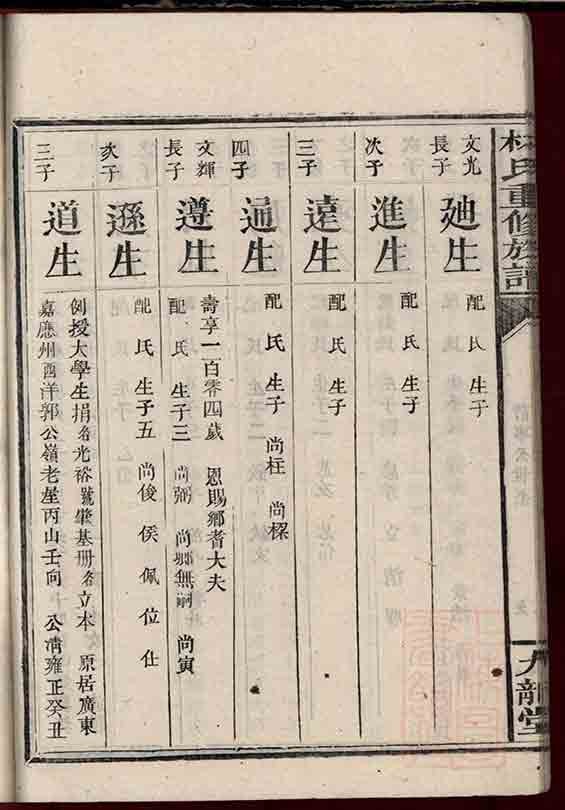 林氏重修族譜
九龍堂
文光
長子
廸生
配 氏 生子
次子
進生
配 氏 生子
三子
遠生
配 氏 生子
四子
通生
配 氏 生子 尚枉 尚樑
文輝
長子
遵生
壽享一百零四歲 恩賜鄉耆大夫
配 氏 生子三 尚弼 尚鄉無嗣 尚寅
次子
遜生
配 氏 生子五 尚俊 侯 佩 位 仕
三子
道生
例授大學生捐名光裕號肇基册名立本 原居廣東
嘉應州西洋郭公嶺老屋丙山壬向 公清雍正癸丑